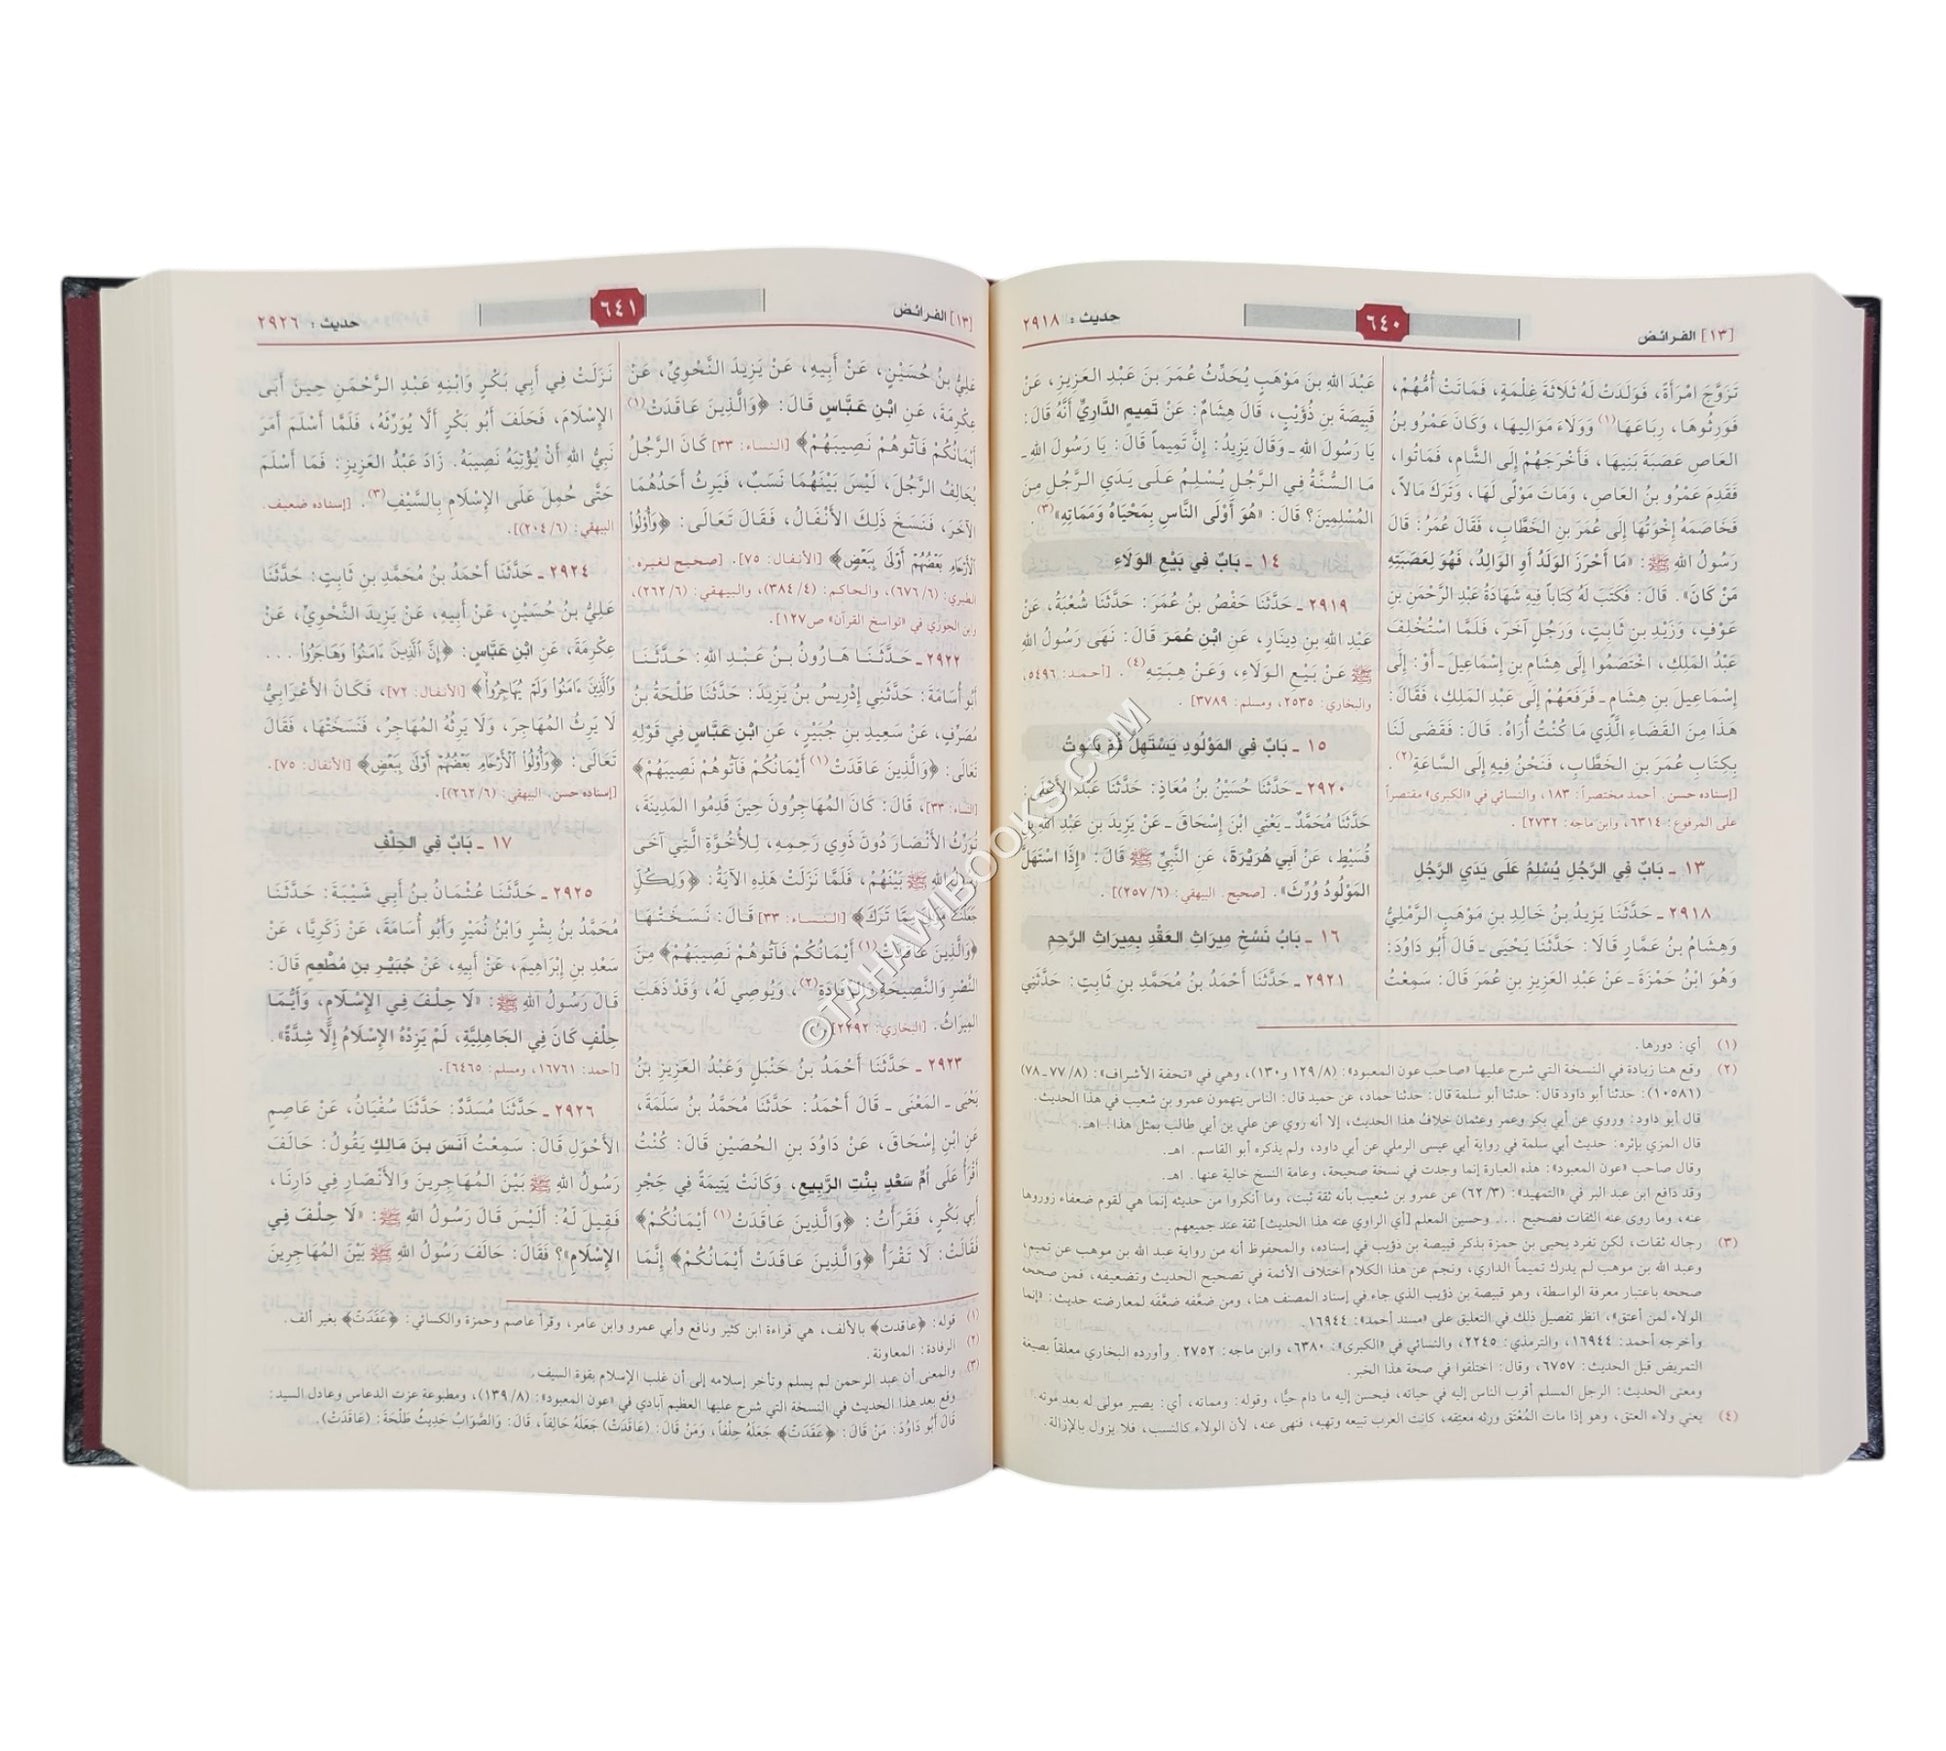 [١٣] الفرائض
٦٤٠
حديث: ٢٩١٨
تَزَوَّجَ امْرَأَةً، فَوَلَدَتْ لَهُ ثَلَاثَةَ غِلْمَةٍ، فَمَاتَتْ أُمُّهُمْ،
فَوَرِثُوهَا، رِبَاعَهَا(١) وَوَلَاءَ مَوَالِيهَا، وَكَانَ عَمْرُو بنُ
العَاصِ عَصَبَةَ بَنِيهَا، فَأَخْرَجَهُمْ إِلَى الشَّامِ، فَمَاتُوا،
فَقَدِمَ عَمْرُو بنُ العَاصِ، وَمَاتَ مَوْلًى لَهَا، وَتَرَكَ مَالاً،
فَخَاصَمَهُ إِخْوَتُهَا إِلَى عُمَرَ بنِ الخَطَّابِ، فَقَالَ عُمَرُ: قَالَ
رَسُولُ اللهِ ﷺ: «مَا أَحْرَزَ الوَلَدُ أَوِ الوَالِدُ، فَهُوَ لِعَصَبَتِهِ
مَنْ كَانَ». قَالَ: فَكَتَبَ لَهُ كِتَاباً فِيهِ شَهَادَةُ عَبْدِ الرَّحْمَنِ بنِ
عَوْفٍ، وَزَيْدِ بنِ ثَابِتٍ، وَرَجُلٍ آخَرَ، فَلَمَّا اسْتُخْلِفَ
عَبْدُ المَلِكِ، اخْتَصَمُوا إِلَى هِشَامِ بنِ إِسْمَاعِيلَ ـ أَوْ: إِلَى
إِسْمَاعِيلَ بنِ هِشَامٍ ـ فَرَفَعَهُمْ إِلَى عَبْدِ المَلِكِ، فَقَالَ:
هَذَا مِنَ القَضَاءِ الَّذِي مَا كُنْتُ أُرَاهُ. قَالَ: فَقَضَى لَنَا
بِكِتَابِ عُمَرَ بنِ الخَطَّابِ، فَنَحْنُ فِيهِ إِلَى السَّاعَةِ(٢).
[إسناده حسن. أحمد مختصراً: ١٨٣، والنسائي في «الكبرى» مقتصراً
على المرفوع: ٦٣١٤، وابن ماجه: ٢٧٣٢].
١٣ ـ بَابٌ فِي الرَّجُلِ يُسْلِمُ عَلَى يَدَيِ الرَّجُلِ
٢٩١٨ ـ حَدَّثَنَا يَزِيدُ بنُ خَالِدِ بنِ مَوْهَبٍ الرَّمْلِيُّ
وَهِشَامُ بنُ عَمَّارٍ قَالَا: حَدَّثَنَا يَحْيَى ـ قَالَ أَبُو دَاوُدَ:
وَهُوَ ابْنُ حَمْزَةَ ـ عَنْ عَبْدِ العَزِيزِ بنِ عُمَرَ قَالَ: سَمِعْتُ
عَبْدَ اللهِ بنَ مَوْهَبٍ يُحَدِّثُ عُمَرَ بنَ عَبْدِ العَزِيزِ، عَنْ
قَبِيصَةَ بنِ ذُؤَيْبٍ، قَالَ هِشَامٌ: عَنْ تَمِيمٍ الدَّارِيِّ أَنَّهُ قَالَ:
يَا رَسُولَ اللهِ ـ وَقَالَ يَزِيدُ: إِنَّ تَمِيماً قَالَ: يَا رَسُولَ اللهِ ـ
مَا السُّنَّةُ فِي الرَّجُلِ يُسْلِمُ عَلَى يَدَيِ الرَّجُلِ مِنَ
المُسْلِمِينَ؟ قَالَ: «هُوَ أَوْلَى النَّاسِ بِمَحْيَاهُ وَمَمَاتِهِ»(٣).
١٤ ـ بَابٌ فِي بَيْعِ الوَلَاءِ
٢٩١٩ ـ حَدَّثَنَا حَفْصُ بنُ عُمَرَ: حَدَّثَنَا شُعْبَةُ، عَنْ
عَبْدِ اللهِ بنِ دِينَارٍ، عَنِ ابْنِ عُمَرَ قَالَ: نَهَى رَسُولُ اللهِ
ﷺ عَنْ بَيْعِ الوَلَاءِ، وَعَنْ هِبَتِهِ(٤). [أحمد: ٥٤٩٦،
والبخاري: ٢٥٣٥، ومسلم: ٣٧٨٩].
١٥ ـ بَابٌ فِي المَوْلُودِ يَسْتَهِلُّ ثُمَّ يَمُوتُ
٢٩٢٠ ـ حَدَّثَنَا حُسَيْنُ بنُ مُعَاذٍ: حَدَّثَنَا عَبْدُ الأَعْلَى:
حَدَّثَنَا مُحَمَّدٌ ـ يَعْنِي ابْنَ إِسْحَاقَ ـ عَنْ يَزِيدَ بنِ عَبْدِ اللهِ بنِ
قُسَيْطٍ، عَنْ أَبِي هُرَيْرَةَ، عَنِ النَّبِيِّ ﷺ قَالَ: «إِذَا اسْتَهَلَّ
المَوْلُودُ وُرِّثَ». [صحيح. البيهقي: (٦/ ٢٥٧)].
١٦ ـ بَابُ نَسْخِ مِيرَاثِ العَقْدِ بِمِيرَاثِ الرَّحِمِ
٢٩٢١ ـ حَدَّثَنَا أَحْمَدُ بنُ مُحَمَّدِ بنِ ثَابِتٍ: حَدَّثَنِي
(١) أي: دورها.
(٢) وقع هنا زيادة في النسخة التي شرح عليها «صاحب عون المعبود»: (٨/ ١٢٩ و١٣٠)، وهي في «تحفة الأشراف»: (٨/ ٧٧ ـ ٧٨)
(١٠٥٨١): حدثنا أبو داود قال: حدثنا أبو سلمة قال: حدثنا حماد، عن حميد قال: الناس يتهمون عمرو بن شعيب في هذا الحديث.
قال أبو داود: وروي عن أبي بكر وعمر وعثمان خلافُ هذا الحديث، إلا أنه روي عن علي بن أبي طالب بمثل هذا. اهـ.
قال المزي بإثره: حديث أبي سلمة في رواية أبي عيسى الرملي عن أبي داود، ولم يذكره أبو القاسم. اهـ.
وقال صاحب «عون المعبود»: هذه العبارة إنما وجدت في نسخة صحيحة، وعامة النسخ خالية عنها. اهـ.
وقد دافع ابن عبد البر في «التمهيد»: (٣/ ٦٢) عن عمرو بن شعيب بأنه ثقة ثبت، وما أنكروا من حديثه إنما هي لقوم ضعفاء زوروها
عنه، وما روى عنه الثقات فصحيح ... وحسين المعلم [أي الراوي عنه هذا الحديث] ثقة عند جميعهم.
(٣) رجاله ثقات، لكن تفرد يحيى بن حمزة بذكر قبيصة بن ذؤيب في إسناده، والمحفوظ أنه من رواية عبد الله بن موهب عن تميم،
وعبد الله بن موهب لم يدرك تميماً الداري، ونجم عن هذا الكلام اختلاف الأئمة في تصحيح الحديث وتضعيفه، فمن صححه
صححه باعتبار معرفة الواسطة، وهو قبيصة بن ذؤيب الذي جاء في إسناد المصنف هنا، ومن ضعَّفه ضعَّفه لمعارضته حديث: «إنما
الولاء لمن أعتق»، انظر تفصيل ذلك في التعليق على «مسند أحمد»: ١٦٩٤٤.
وأخرجه أحمد: ١٦٩٤٤، والترمذي: ٢٢٤٥، والنسائي في «الكبرى»: ٦٣٨٠، وابن ماجه: ٢٧٥٢. وأورده البخاري معلقاً بصيغة
التمريض قبل الحديث: ٦٧٥٧، وقال: اختلفوا في صحة هذا الخبر.
ومعنى الحديث: الرجل المسلم أقرب الناس إليه في حياته، فيحسن إليه ما دام حيًّا، وقوله: ومماته، أي: يصير مولى له بعد موته.
(٤) يعني ولاء العتق، وهو إذا مات المُعْتَق ورثه معتِقه، كانت العرب تبيعه وتهبه، فنهى عنه، لأن الولاء كالنسب، فلا يزول بالإزالة.
[١٣] الفرائض
٦٤١
حديث: ٢٩٢٦
عَلِيُّ بنُ حُسَيْنٍ، عَنْ أَبِيهِ، عَنْ يَزِيدَ النَّحْوِيِّ، عَنْ
عِكْرِمَةَ، عَنِ ابْنِ عَبَّاسٍ قَالَ: ﴿وَالَّذِينَ عَاقَدَتْ(١)
أَيْمَانُكُمْ فَآتُوهُمْ نَصِيبَهُمْ﴾ [النساء: ٣٣] كَانَ الرَّجُلُ
يُحَالِفُ الرَّجُلَ، لَيْسَ بَيْنَهُمَا نَسَبٌ، فَيَرِثُ أَحَدُهُمَا
الآخَرَ، فَنَسَخَ ذَلِكَ الأَنْفَالُ، فَقَالَ تَعَالَى: ﴿وَأُوْلُوا
الْأَرْحَامِ بَعْضُهُمْ أَوْلَى بِبَعْضٍ﴾ [الأنفال: ٧٥]. [صحيح لغيره.
الطبري: (٦/ ٦٧٦)، والحاكم: (٤/ ٣٨٤)، والبيهقي: (٦/ ٢٦٢)،
وابن الجوزي في «نواسخ القرآن» ص١٢٧].
٢٩٢٢ ـ حَدَّثَنَا هَارُونُ بنُ عَبْدِ اللهِ: حَدَّثَنَا
أَبُو أُسَامَةَ: حَدَّثَنِي إِدْرِيسُ بنُ يَزِيدَ: حَدَّثَنَا طَلْحَةُ بنُ
مُصَرِّفٍ، عَنْ سَعِيدِ بنِ جُبَيْرٍ، عَنِ ابْنِ عَبَّاسٍ فِي قَوْلِهِ
تَعَالَى: ﴿وَالَّذِينَ عَاقَدَتْ(١) أَيْمَانُكُمْ فَآتُوهُمْ نَصِيبَهُمْ﴾
[النساء: ٣٣]، قَالَ: كَانَ المُهَاجِرُونَ حِينَ قَدِمُوا المَدِينَةَ،
تُوَرِّثُ الأَنْصَارَ دُونَ ذَوِي رَحِمِهِ، لِلأُخُوَّةِ الَّتِي آخَى
رَسُولُ اللهِ ﷺ بَيْنَهُمْ، فَلَمَّا نَزَلَتْ هَذِهِ الآيَةُ: ﴿وَلِكُلٍّ
جَعَلْنَا مَوَالِيَ مِمَّا تَرَكَ﴾ [النساء: ٣٣] قَالَ: نَسَخَتْهَا
﴿وَالَّذِينَ عَاقَدَتْ(١) أَيْمَانُكُمْ فَآتُوهُمْ نَصِيبَهُمْ﴾ مِنَ
النَّصْرِ وَالنَّصِيحَةِ وَالرِّفَادَةِ(٢)، وَيُوصِي لَهُ، وَقَدْ ذَهَبَ
المِيرَاثُ. [البخاري: ٢٢٩٢].
٢٩٢٣ ـ حَدَّثَنَا أَحْمَدُ بنُ حَنْبَلٍ وَعَبْدُ العَزِيزِ بنُ
يَحْيَى ـ المَعْنَى ـ قَالَ أَحْمَدُ: حَدَّثَنَا مُحَمَّدُ بنُ سَلَمَةَ،
عَنِ ابْنِ إِسْحَاقَ، عَنْ دَاوُدَ بنِ الحُصَيْنِ قَالَ: كُنْتُ
أَقْرَأُ عَلَى أُمِّ سَعْدٍ بِنْتِ الرَّبِيعِ، وَكَانَتْ يَتِيمَةً فِي حِجْرِ
أَبِي بَكْرٍ، فَقَرَأَتُ: ﴿وَالَّذِينَ عَاقَدَتْ(١) أَيْمَانُكُمْ﴾
فَقَالَتْ: لَا تَقْرَأْ ﴿وَالَّذِينَ عَاقَدَتْ أَيْمَانُكُمْ﴾ إِنَّمَا
نَزَلَتْ فِي أَبِي بَكْرٍ وَابْنِهِ عَبْدِ الرَّحْمَنِ حِينَ أَبَى
الإِسْلَامَ، فَحَلَفَ أَبُو بَكْرٍ أَلَّا يُوَرِّثَهُ، فَلَمَّا أَسْلَمَ أَمَرَ
نَبِيُّ اللهِ أَنْ يُؤْتِيَهُ نَصِيبَهُ. زَادَ عَبْدُ العَزِيزِ: فَمَا أَسْلَمَ
حَتَّى حُمِلَ عَلَى الإِسْلَامِ بِالسَّيْفِ(٣). [إسناده ضعيف.
البيهقي: (٦/ ٢٠٤)].
٢٩٢٤ ـ حَدَّثَنَا أَحْمَدُ بنُ مُحَمَّدِ بنِ ثَابِتٍ: حَدَّثَنَا
عَلِيُّ بنُ حُسَيْنٍ، عَنْ أَبِيهِ، عَنْ يَزِيدَ النَّحْوِيِّ، عَنْ
عِكْرِمَةَ، عَنِ ابْنِ عَبَّاسٍ: ﴿إِنَّ الَّذِينَ ءَامَنُوا وَهَاجَرُوا ...
وَالَّذِينَ ءَامَنُوا وَلَمْ يُهَاجِرُوا﴾ [الأنفال: ٧٢]، فَكَانَ الأَعْرَابِيُّ
لَا يَرِثُ المُهَاجِرَ، وَلَا يَرِثُهُ المُهَاجِرُ، فَنَسَخَتْهَا، فَقَالَ
تَعَالَى: ﴿وَأُوْلُوا الْأَرْحَامِ بَعْضُهُمْ أَوْلَى بِبَعْضٍ﴾ [الأنفال: ٧٥].
[إسناده حسن. البيهقي: (٦/ ٢٦٢)].
١٧ ـ بَابٌ فِي الحِلْفِ
٢٩٢٥ ـ حَدَّثَنَا عُثْمَانُ بنُ أَبِي شَيْبَةَ: حَدَّثَنَا
مُحَمَّدُ بنُ بِشْرٍ وَابْنُ نُمَيْرٍ وَأَبُو أُسَامَةَ، عَنْ زَكَرِيَّا، عَنْ
سَعْدِ بنِ إِبْرَاهِيمَ، عَنْ أَبِيهِ، عَنْ جُبَيْرِ بنِ مُطْعِمٍ قَالَ:
قَالَ رَسُولُ اللهِ ﷺ: «لَا حِلْفَ فِي الإِسْلَامِ، وَأَيُّمَا
حِلْفٍ كَانَ فِي الجَاهِلِيَّةِ، لَمْ يَزِدْهُ الإِسْلَامُ إِلَّا شِدَّةً».
[أحمد: ١٦٧٦١، ومسلم: ٦٤٦٥].
٢٩٢٦ ـ حَدَّثَنَا مُسَدَّدٌ: حَدَّثَنَا سُفْيَانُ، عَنْ عَاصِمٍ
الأَحْوَلِ قَالَ: سَمِعْتُ أَنَسَ بنَ مَالِكٍ يَقُولُ: حَالَفَ
رَسُولُ اللهِ ﷺ بَيْنَ المُهَاجِرِينَ وَالأَنْصَارِ فِي دَارِنَا،
فَقِيلَ لَهُ: أَلَيْسَ قَالَ رَسُولُ اللهِ ﷺ: «لَا حِلْفَ فِي
الإِسْلَامِ»؟ فَقَالَ: حَالَفَ رَسُولُ اللهِ ﷺ بَيْنَ المُهَاجِرِينَ
(١) قوله: ﴿عاقدت﴾ بالألف، هي قراءة ابن كثير ونافع وأبي عمرو وابن عامر، وقرأ عاصم وحمزة والكسائي: ﴿عَقَدَتْ﴾ بغير ألف.
(٢) الرفادة: المعاونة.
(٣) والمعنى أن عبد الرحمن لم يسلم وتأخر إسلامه إلى أن غلب الإسلام بقوة السيف.
وقع بعد هذا الحديث في النسخة التي شرح عليها العظيم آبادي في «عون المعبود»: (٨/ ١٣٩)، ومطبوعة عزت الدعاس وعادل السيد:
قَالَ أَبُو دَاوُدَ: مَنْ قَالَ: ﴿عَقَدَتْ﴾ جَعَلَهُ حِلْفاً، وَمَنْ قَالَ: (عَاقَدَتْ) جَعَلَهُ حَالِفاً، قَالَ: وَالصَّوَابُ حَدِيثُ طَلْحَةَ: (عَاقَدَتْ).
©TAHAWIBOOKS.COM